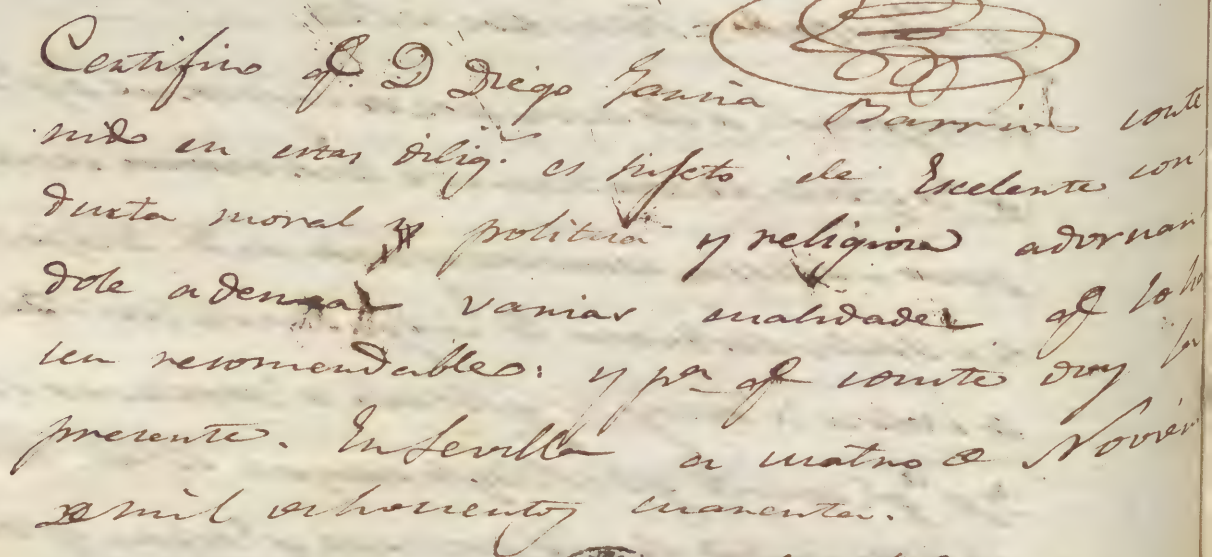 Certifico q.e D Diego Garcia Barrios conte
nido en estas dilig.s es sujeto de Escelente con
ducta moral y politica y religiosa adornan
dole ademas varias cualidades q.e lo ha
cen recomendable: y p.a q.e conste doy la
presente. En Sevilla a cuatro de Noviem
de mil ochocientos cuarenta.